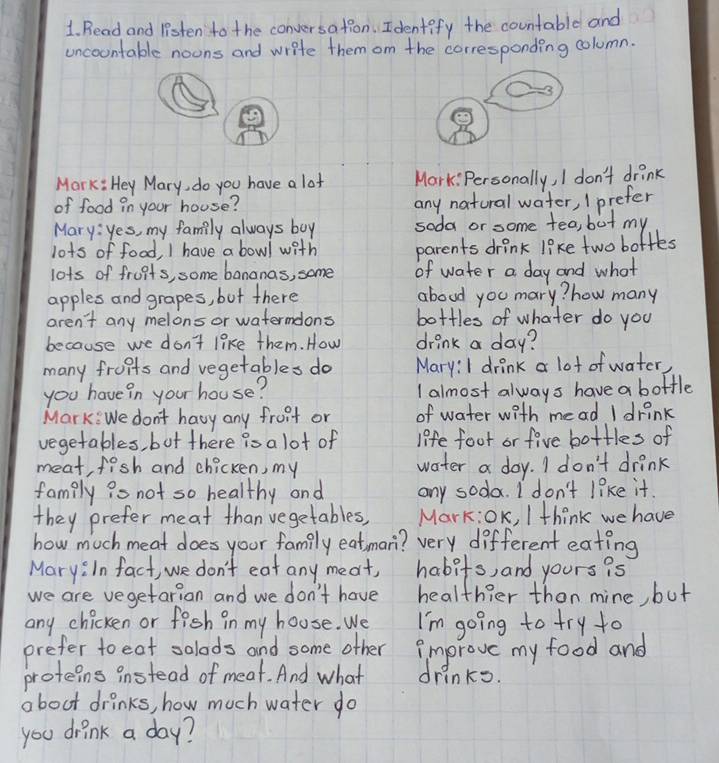 1. Read and listen to the conversation. Identify the countable and
uncountable nouns and write them om the corresponding column.
Mark: Hey Mary, do you have a lot
of food in your house?
Mary: yes, my family always buy
lots of food, I have a bowl with
lots of fruits, some bananas, some
apples and grapes, but there
aren't any melons or watermdons
because we don't like them. How
many fruits and vegetables do
you have in your house?
Mark: We don't havy any fruit or
vegetables, but there is a lot of
meat, fish and chicken, my
family is not so healthy and
they prefer meat than vegetables,
how much meat does your family eat, mari?
Mary: In fact, we don't eat any meat,
we are vegetarian and we don't have
any chicken or fish in my house. We
prefer to eat salads and some other
proteins instead of meat. And what
about drinks, how much water do
you drink a day?
Mark: Personally, I don't drink
any natural water, I prefer
soda or some tea, but my
parents drink like two bottles
of water a day and what
aboud you mary? how many
bottles of whater do you
drink a day?
Mary: I drink a lot of water,
I almost always have a bottle
of water with me ad I drink
life foot or five bottles of
water a day. I don't drink
any soda. I don't like it.
Mark: OK, I think we have
very different eating
habits, and yours is
healthier than mine, but
I'm going to try to
improve my food and
drinks.